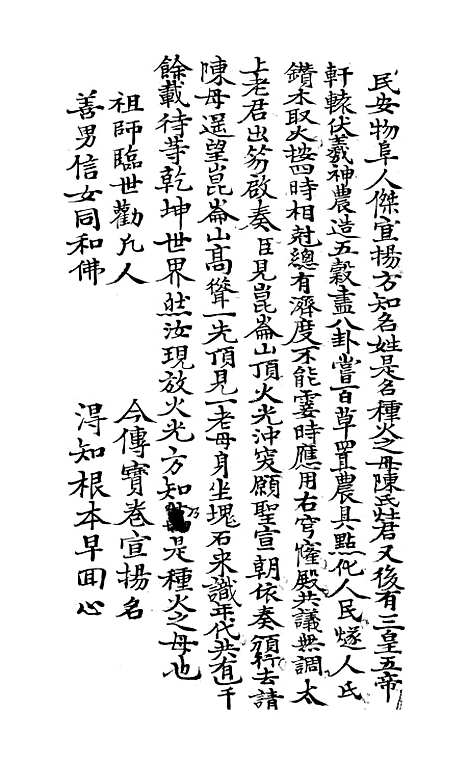 民安物阜人傑宣揚方知名姓是名種火之母陳氏灶君又後有三皇五帝
軒轅伏羲神農造五穀畫八卦嘗百草置農具點化人民燧人氏
鑽木取火按四時相尅總有濟度不能霎時應用右穹窿殿共議無調太
上老君出笏啟奏臣見崑崙山頂火光沖突願聖宣朝依奏頒行去請
陳母遥望崑崙山高聳一先頂見一老母身坐塊石未識年代共有七千
餘載待等乾坤世界然汝現放火光方知乃是種火之母也
祖師臨世勸凢人　今傳寶卷宣揚名
善男信女同和佛　淂知根本早囬心